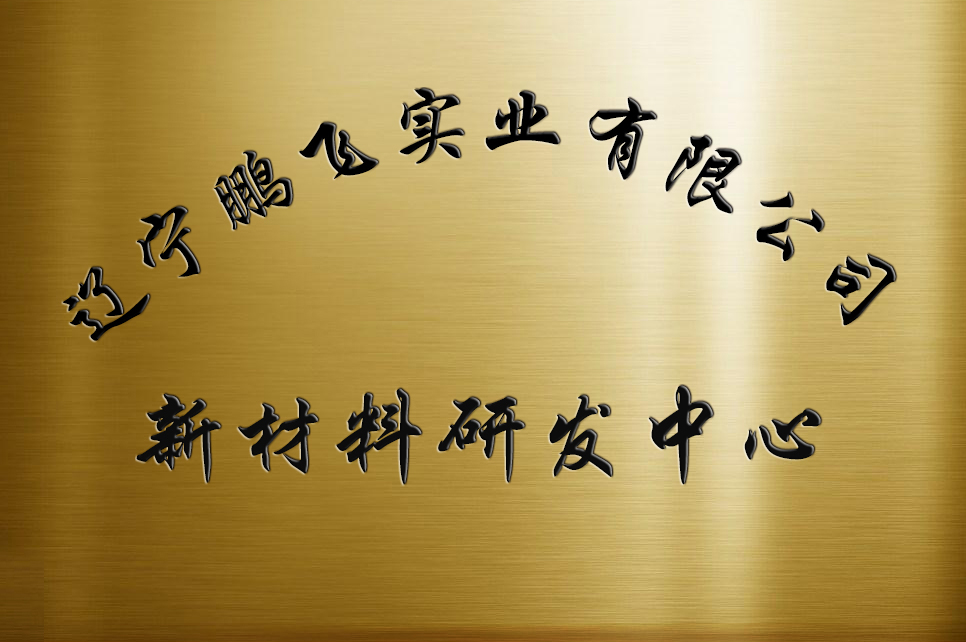 辽宁鹏飞实业有限公司
新材料研发中心